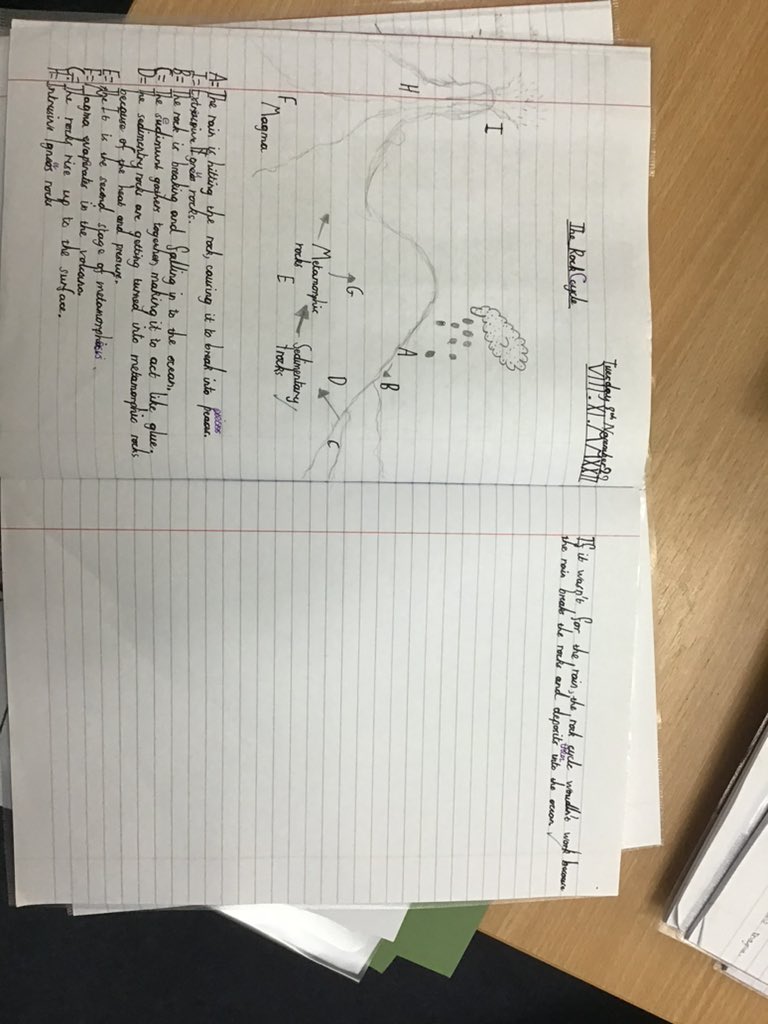 Tuesday 8th November 22
VIII.XI.MMXXII
The Rock Cycle
I
H
A
B
G
Metamorphic
rocks
E
Sedimentary
rocks
D
C
F
Magma
A= The rain is hitting the rock, causing it to break into pieces
I= Extrusive Igneos rocks.
B= The rock is breaking and falling in to the ocean,
C= The sediment gathers together, making it to act like glue,
D= The sedimentry rocks are getting turned into metamorphic rocks
because of the heat and pressure.
E= It is the second stage of metamorphasis.
F= Magma evapirates in the volcano
G= The rocks rise up to the surface.
H= Intrusive Igneos rocks
If it wasn't for the rain, the rock cycle wouldn't work because
the rain breaks the rocks and then deposits into the ocean